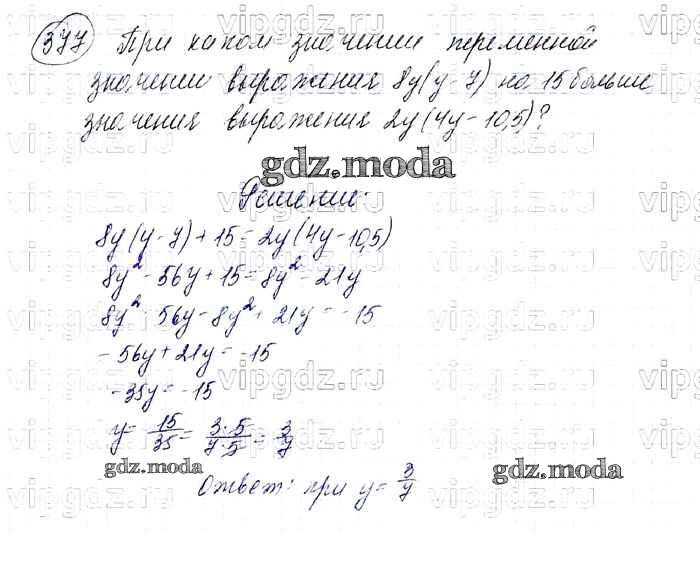 377 При каком значении переменной
значении выражения 8y(y-7) на 15 больше
значения выражения 2y(4y-10,5)?
gdz.moda
Решение:
8y(y-7)+15=2y(4y-10,5)
8y²-56y+15=8y²-21y
8y²-56y-8y²+21y=-15
-56y+21y=-15
-35y=-15
y=15/35=3·5/7·5=3/7
gdz.moda gdz.moda
Ответ: при y=3/7
vipgdz.ru